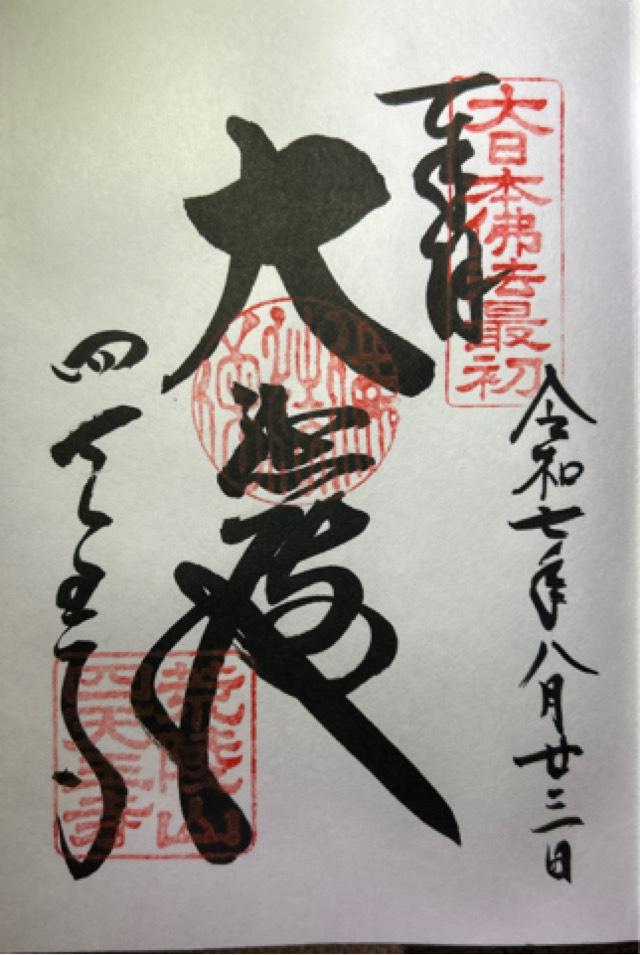 奉拝
大日本佛法最初
令和七年八月廿三日
大殿
四天王寺
荒陵山
四天王寺